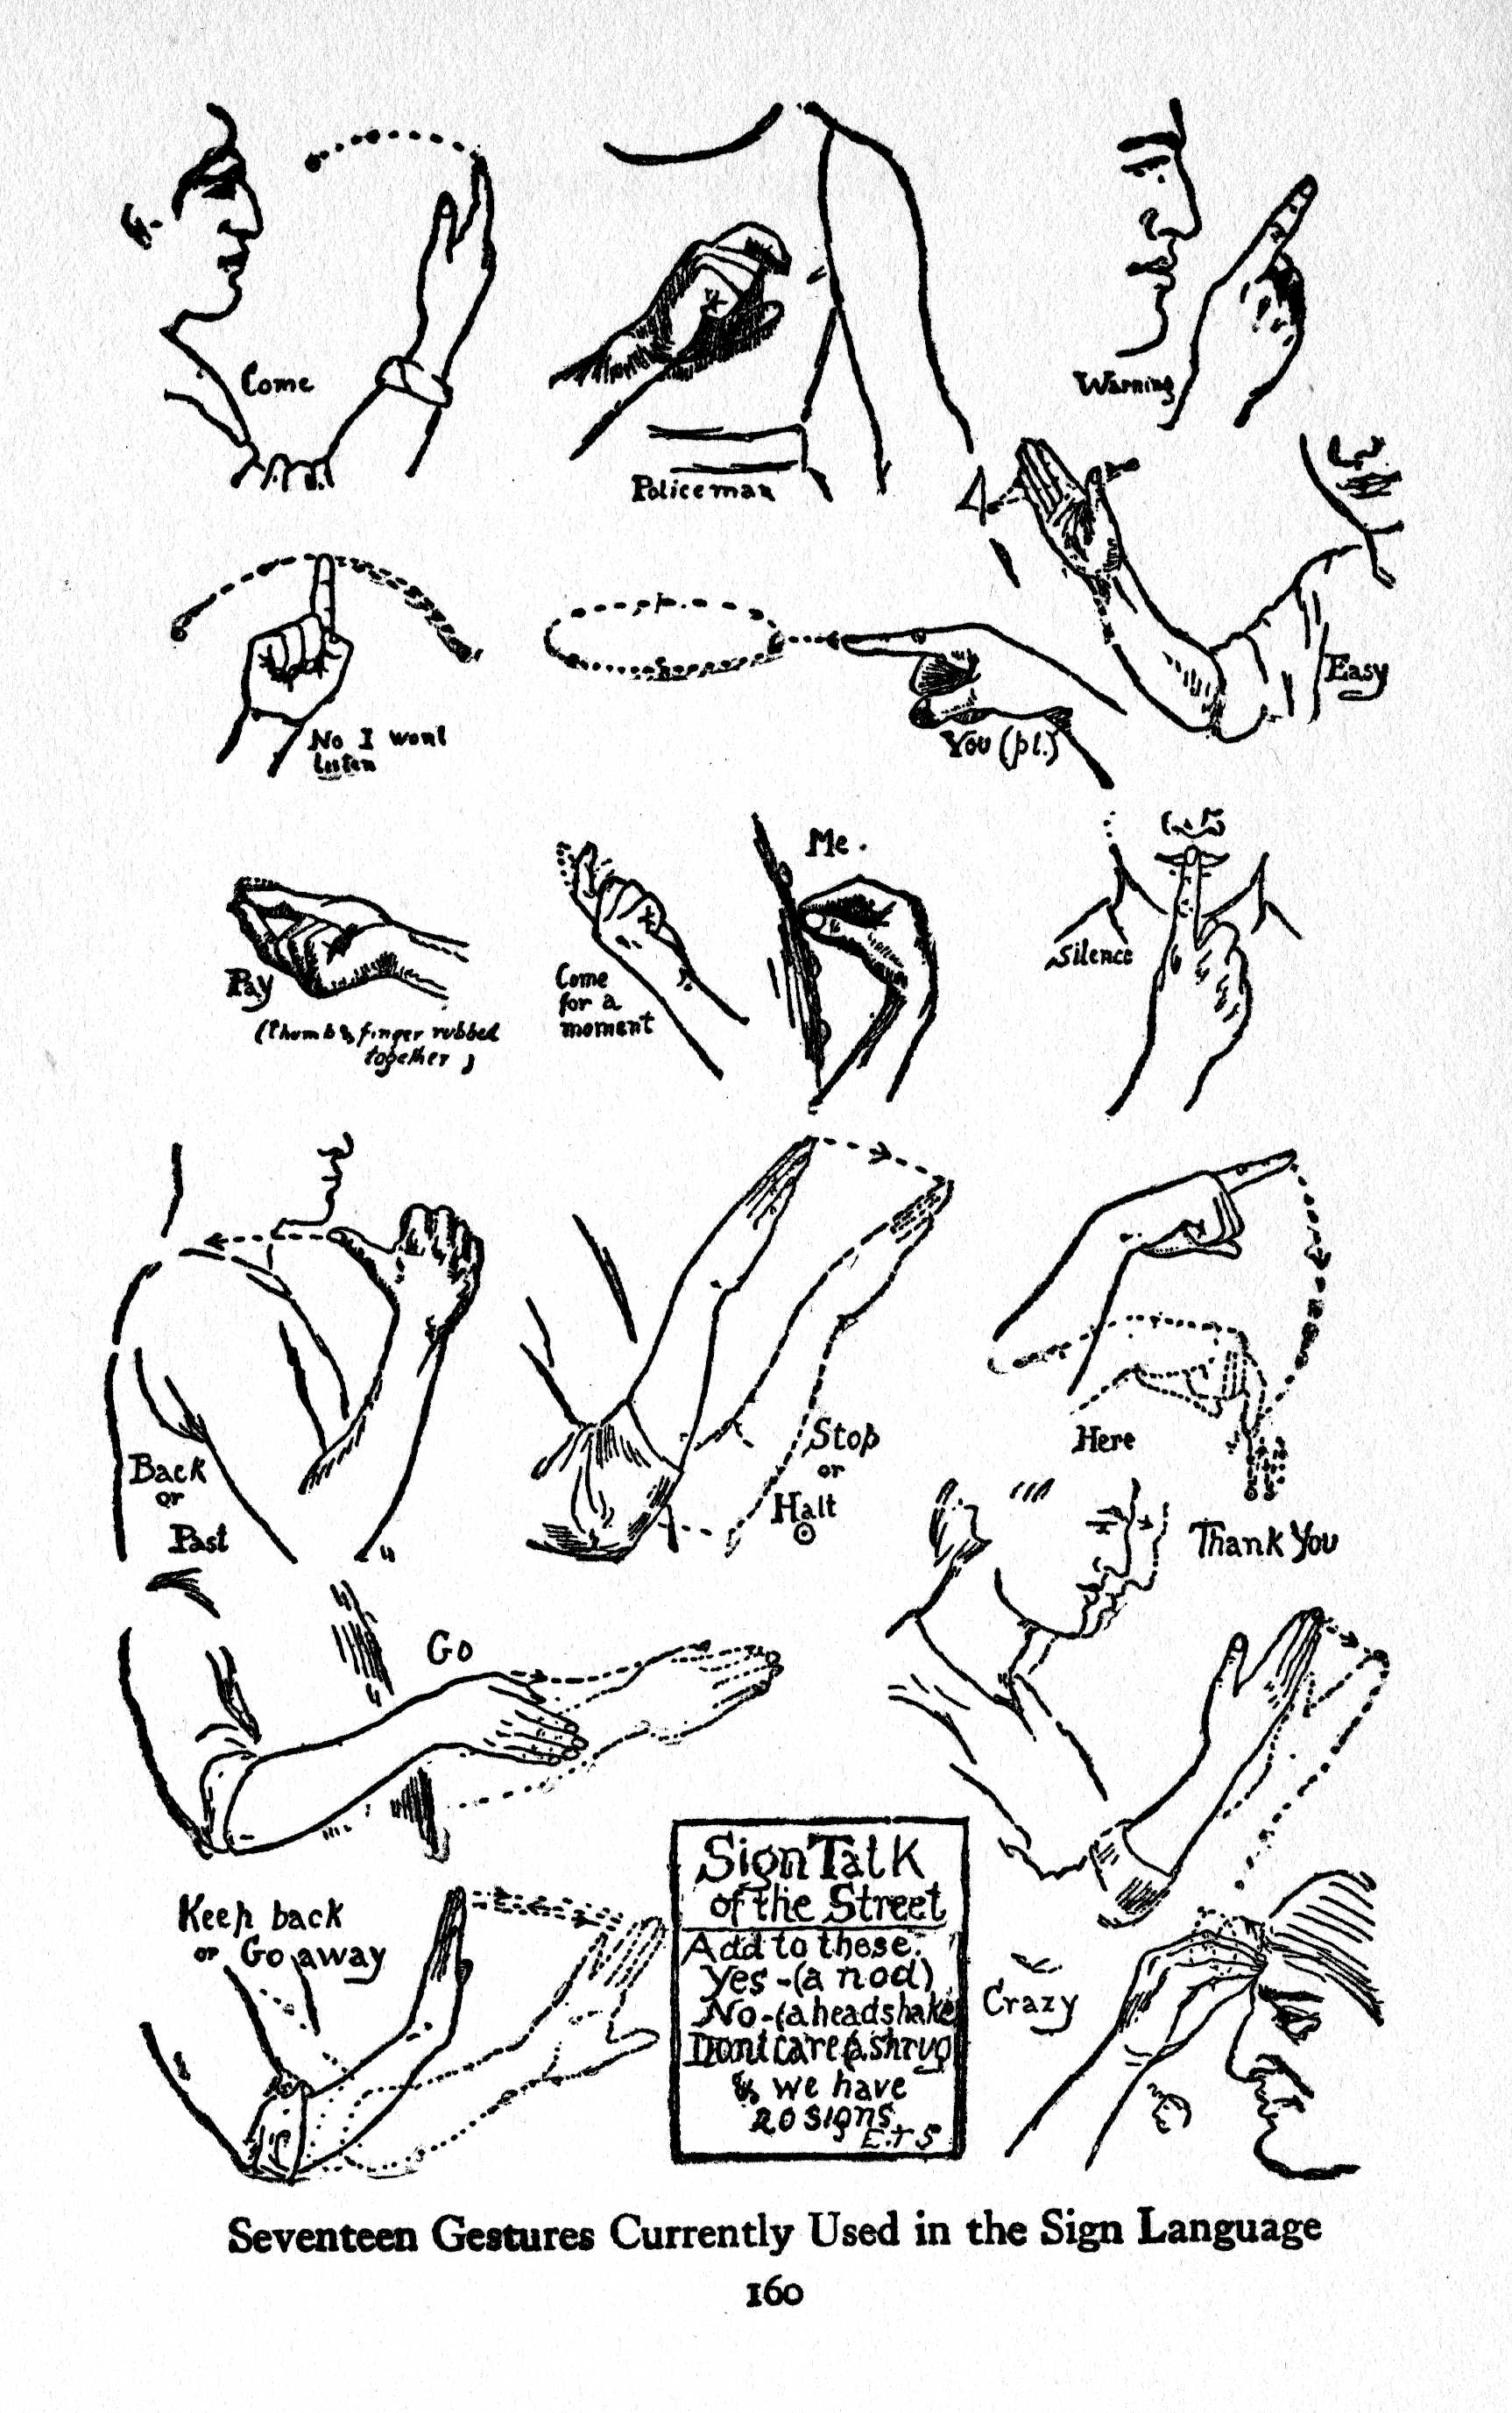 Come
Policeman
Warning
No I wont
listen
You (pl.)
Easy
Pay
(Thumb & finger rubbed
together)
Come
for a
moment
Me.
Silence
Back
or
Past
Stop
or
Halt
Here
Thank You
Go
Keep back
or Go away
Sign Talk
of the Street
Add to these.
Yes - (a nod)
No - (a headshake
Dont care (a shrug
& we have
20 signs.
E.T.S
Crazy
Seventeen Gestures Currently Used in the Sign Language
160